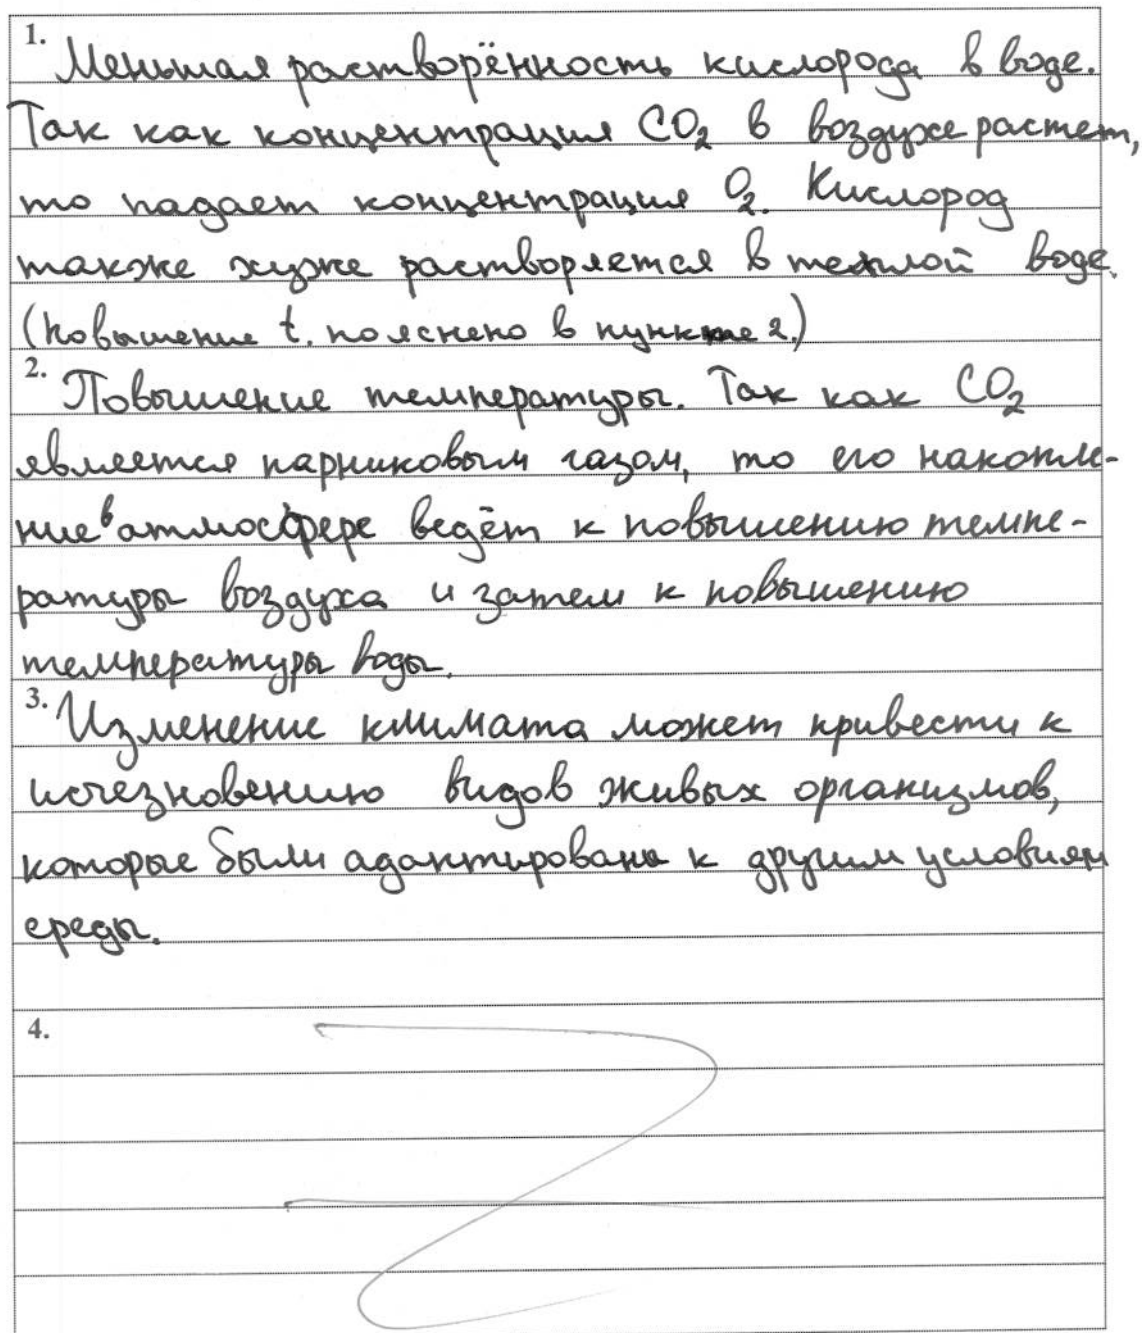 1. Меньшая растворённость кислорода в воде.
Так как концентрация CO₂ в воздухе растет,
то падает концентрация O₂. Кислород
также хуже растворяется в теплой воде.
(Повышение t. пояснено в пункте 2.)
2. Повышение температуры. Так как CO₂
является парниковым газом, то его накопле-
ние в атмосфере ведёт к повышению темпе-
ратуры воздуха и затем к повышению
температуры воды.
3. Изменение климата может привести к
исчезновению видов живых организмов,
которые были адаптированы к другим условиям
среды.
4.